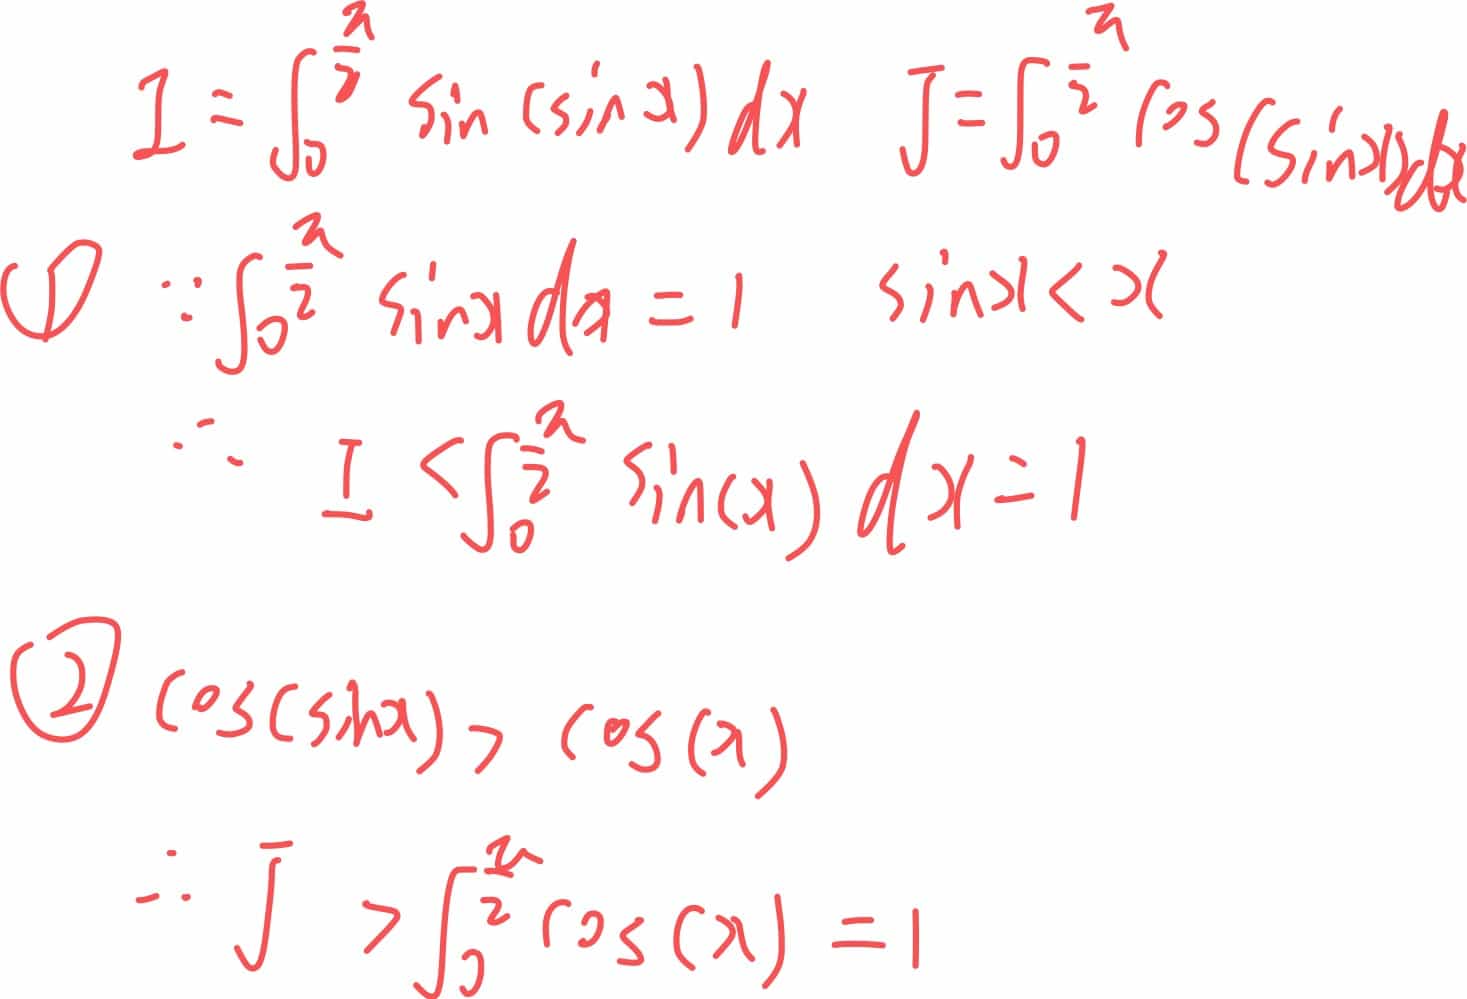 I = ∫₀^{π/2} sin(sinx)dx J = ∫₀^{π/2} cos(sinx)dx
① ∵ ∫₀^{π/2} sinx dx = 1 sinx < x
∴ I < ∫₀^{π/2} sin(x) dx = 1
② cos(sinx) > cos(x)
∴ J > ∫₀^{π/2} cos(x) = 1